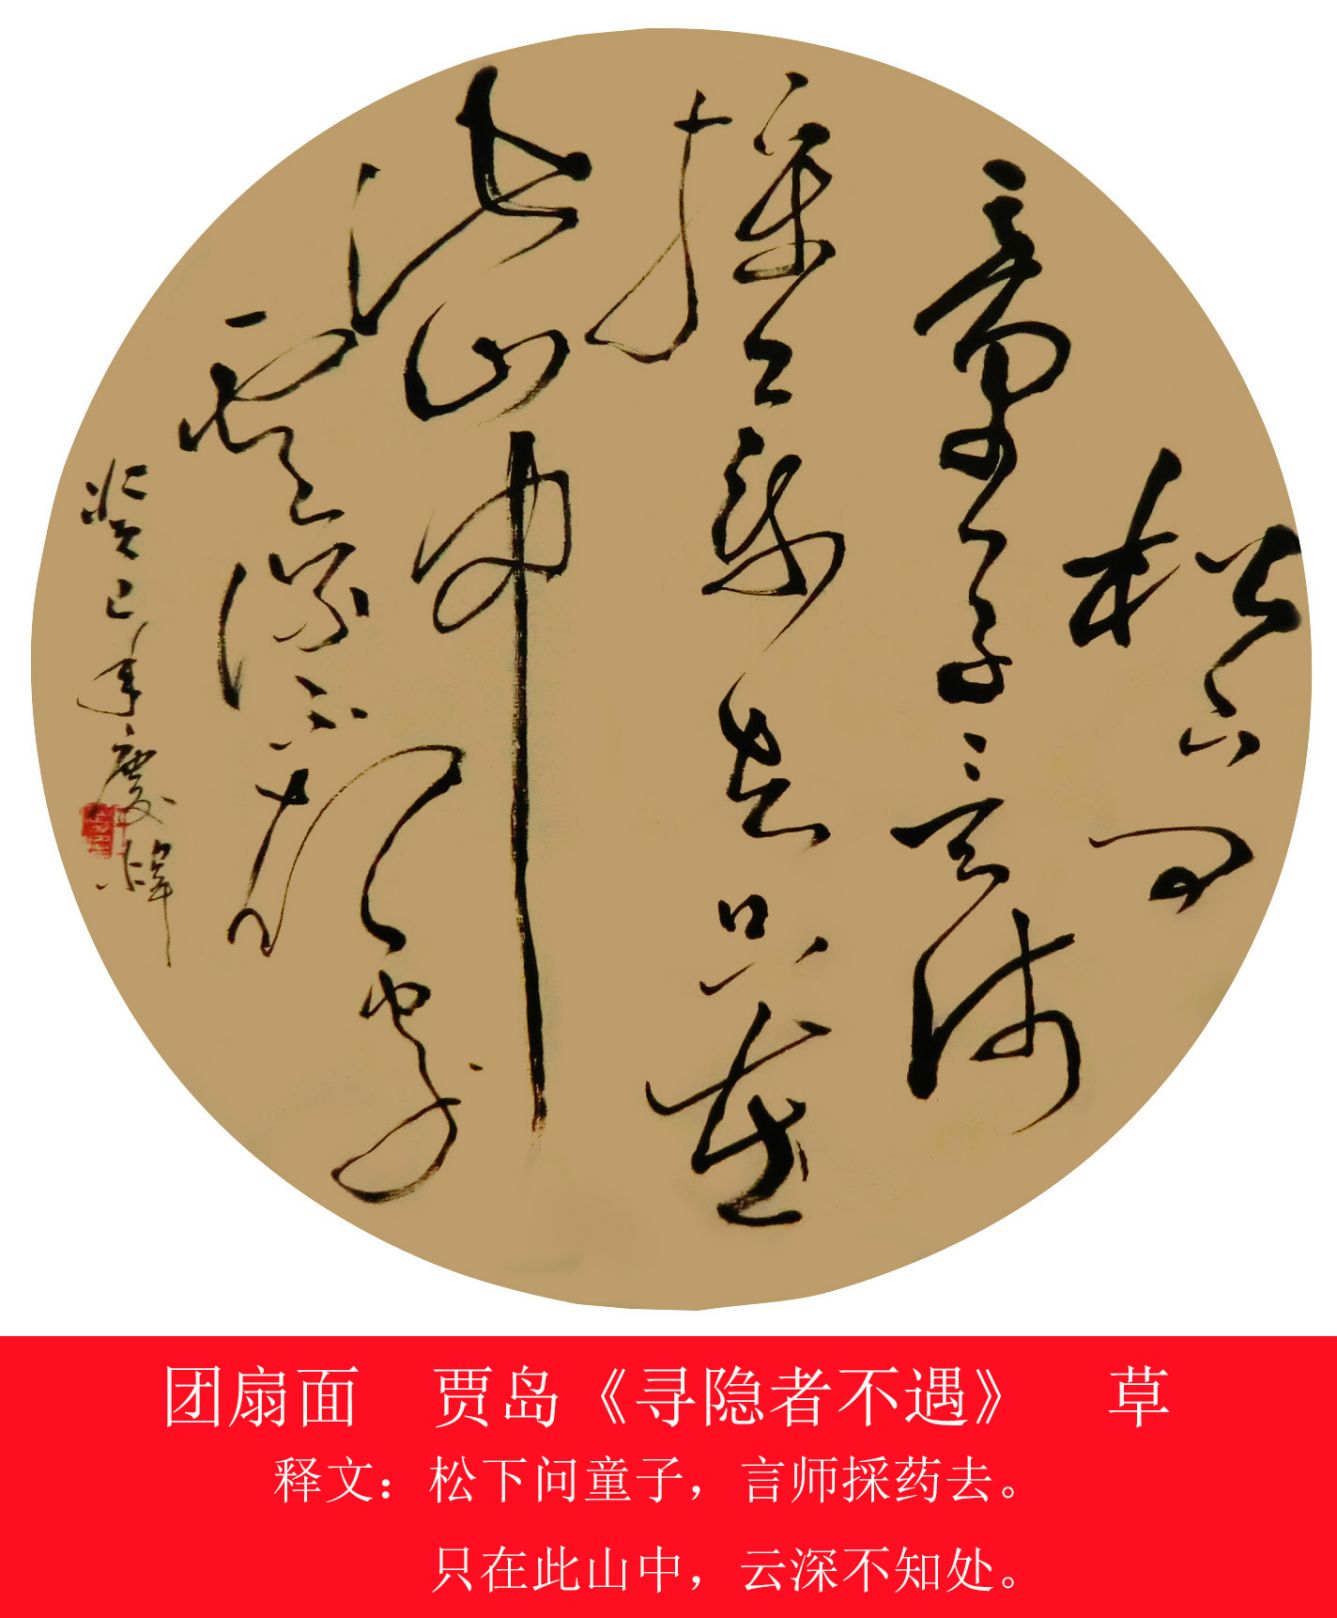 松下问
童子言师
採药去只在
此山中
云深不知处
癸巳年庆烨
团扇面 贾岛《寻隐者不遇》 草
释文：松下问童子，言师採药去。
只在此山中，云深不知处。